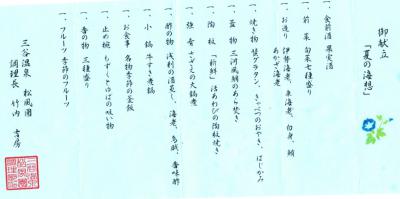 御献立
「夏の海想」
一、食前酒 果実酒
一、前菜 旬菜七種盛り
一、お造り 伊勢海老、車海老、白身、鮪
あかざ海老
一、焼き物 蟹グラタン、きゃべつのおやき、はじかみ
一、蓋物 三河風鯛のあら焚き
一、陶板 「新鮮」活あわびの陶板焼き
一、強肴 さざえの大鍋煮
一、酢の物 浅利の酒蒸し、海老、鳥賊、香味酢
一、小鍋 牛すき煮鍋
一、お食事 名物季節の釜飯
一、止め椀 もずくとゆばの吸い物
一、香の物 三種盛り
一、フルーツ 季節のフルーツ
三谷温泉 松風園
調理長 竹内 吉房